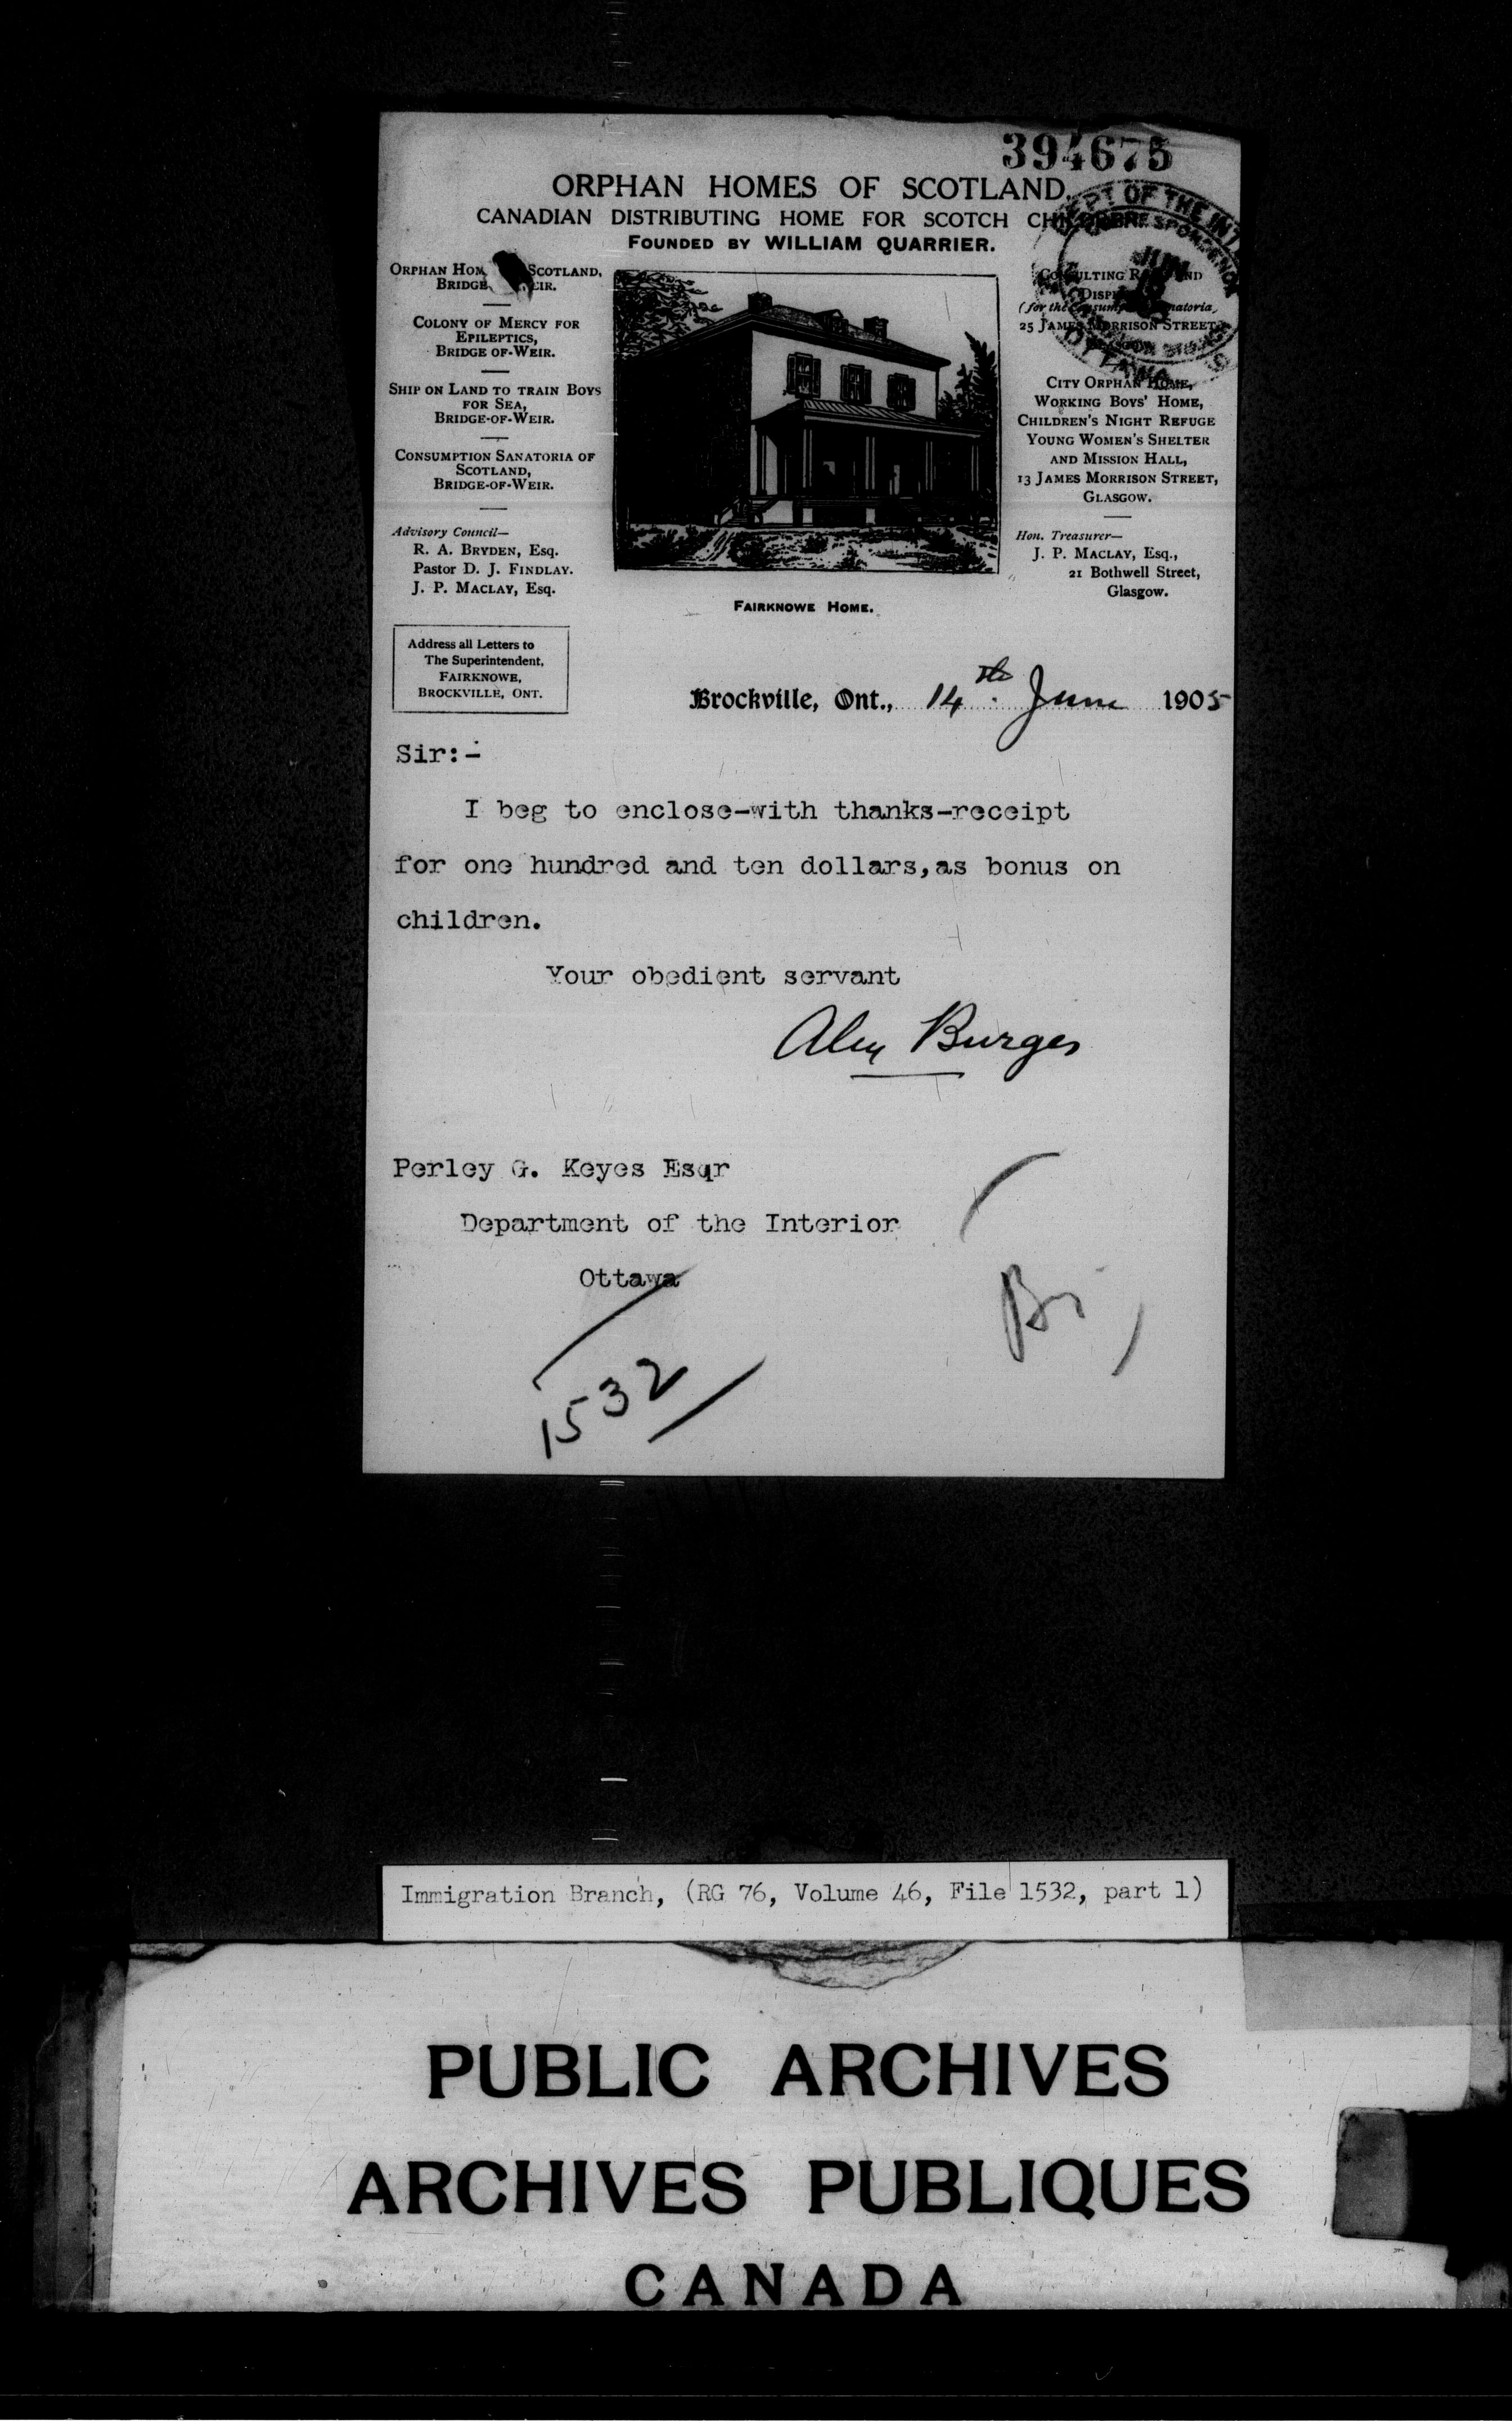 394675
ORPHAN HOMES OF SCOTLAND.
CANADIAN DISTRIBUTING HOME FOR SCOTCH
FOUNDED BY WILLIAM QUARRIER.
DEPT OF THE INT
OTTAWA
ORPHAN SCOTLAND,
BRIDGE
COLONY OF MERCY FOR
EPILEPTICS,
BRIDGE OF-WEIR.
SHIP ON LAND TO TRAIN BOYS
FOR SEA,
BRIDGE-OF-WEIR.
CONSUMPTION SANATORIA OF
SCOTLAND,
BRIDGE-OF-WEIR.
Advisory Council—
R. A. BRYDEN, Esq.
Pastor D. J. FINDLAY.
J. P. MACLAY, Esq.
(for the
25 JAMES MORRISON STREET,
CITY ORPHAN HOME,
WORKING BOYS' HOME,
CHILDREN'S NIGHT REFUGE
YOUNG WOMEN'S SHELTER
AND MISSION HALL,
13 JAMES MORRISON STREET,
GLASGOW.
Hon. Treasurer—
J. P. MACLAY, Esq.,
21 Bothwell Street,
Glasgow.
FAIRKNOWE HOME.
Address all Letters to
The Superintendent,
FAIRKNOWE,
BROCKVILLE, ONT.
Brockville, Ont., 14th June 1905
Sir:-
I beg to enclose-with thanks-receipt
for one hundred and ten dollars,as bonus on
children.
Your obedient servant
Alex Burges
Perley G. Keyes Esqr
Department of the Interior
Ottawa
1532
Immigration Branch, (RG 76, Volume 46, File 1532, part 1)
PUBLIC ARCHIVES
ARCHIVES PUBLIQUES
CANADA